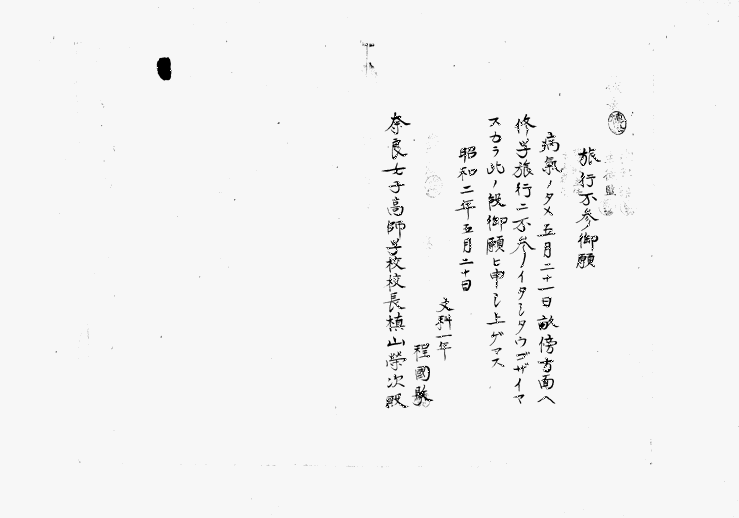 旅行不参御願
病氣ノタメ五月二十一日畝傍方面ヘ
修学旅行ニ不参イタシタウゴザイマ
スカラ此ノ段御願ヒ申シ上ゲマス
昭和二年五月二十日
文科一年
程國
奈良女子高師学校校長槙山榮次殿